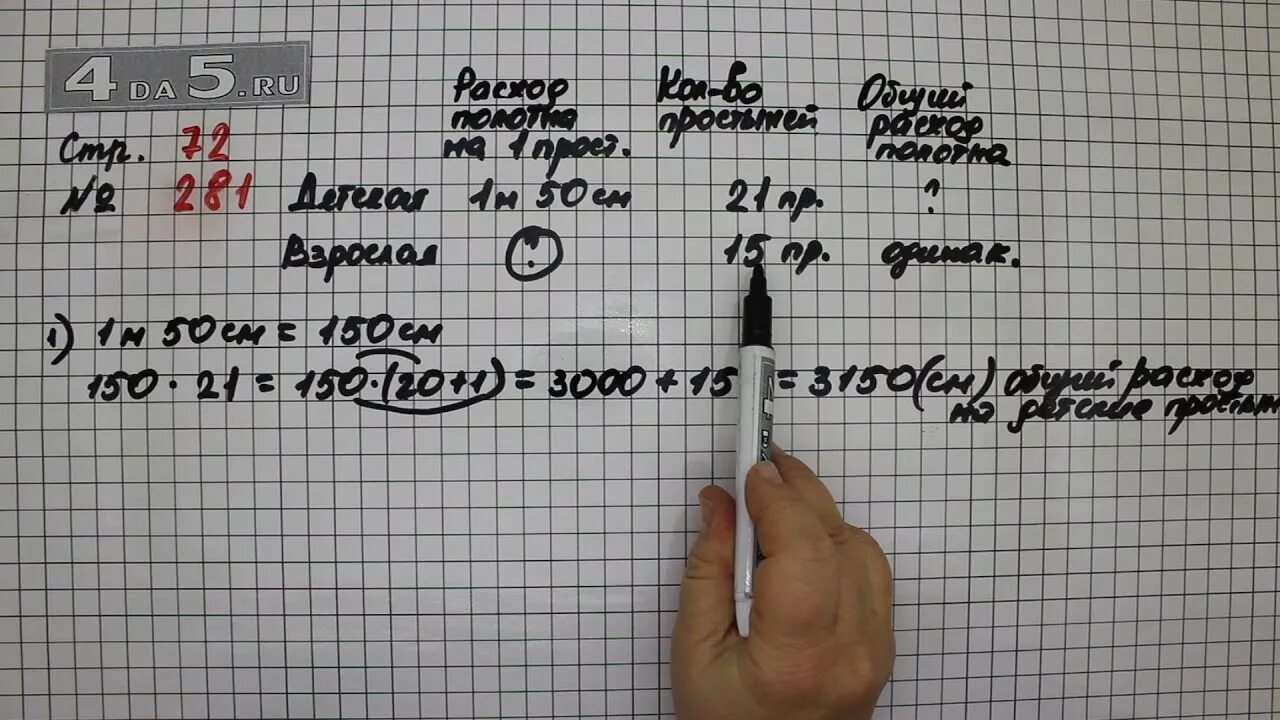 4DA5.RU
Стр. 72
№ 281
Расход полотна на 1 прост.
Кол-во простыней
Общий расход полотна
Детская 1м 50см 21 пр. ?
Взрослая ? 15 пр. одинак.
1) 1м 50см = 150см
150 · 21 = 150·(20+1) = 3000 + 15 = 3150(см) общий расход
на детские простын